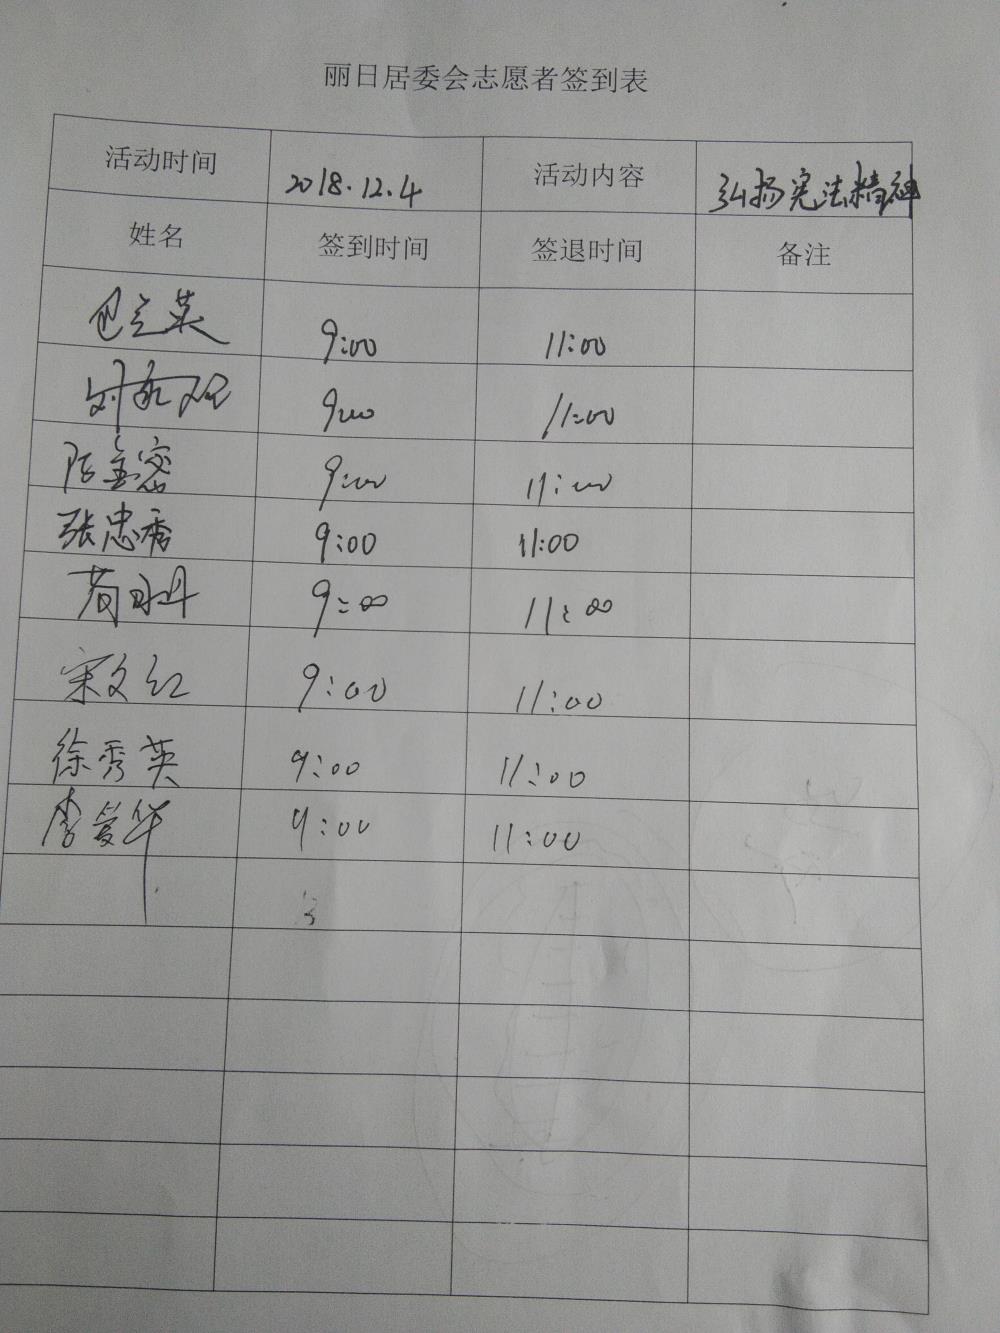 丽日居委会志愿者签到表
活动时间 2018.12.4 活动内容 弘扬宪法精神
姓名 签到时间 签退时间 备注
9:00 11:00
9:00 11:00
陈金密 9:00 11:00
张忠秀 9:00 11:00
9:00 11:00
宋文红 9:00 11:00
徐秀英 9:00 11:00
李爱华 9:00 11:00